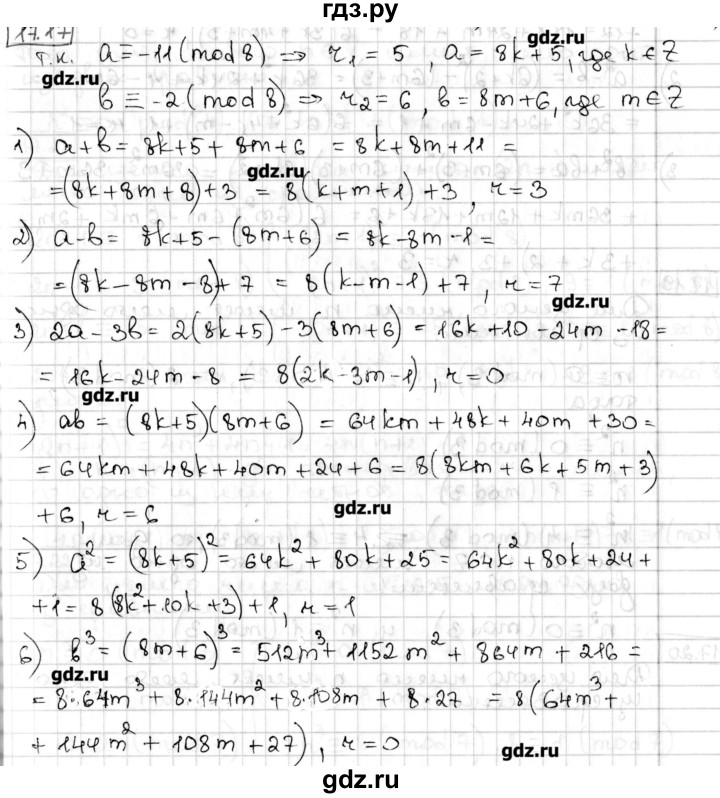 гдз.ру
17.17
т.к. a ≡ -11 (mod 8) ⇒ r₁ = 5, a = 8k+5, где k ∈ Z
gdz.ru
gdz.ru
b ≡ -2 (mod 8) ⇒ r₂ = 6, b = 8m+6, где m ∈ Z
1) a+b = 8k+5+8m+6 = 8k+8m+11 =
gdz.ru
=(8k+8m+8)+3 = 8(k+m+1)+3, r=3
2) a-b = 8k+5-(8m+6) = 8k-8m-1 =
=(8k-8m-8)+7 = 8(k-m-1)+7, r=7
gdz.ru
3) 2a-3b = 2(8k+5)-3(8m+6) = 16k+10-24m-18 =
= 16k-24m-8 = 8(2k-3m-1), r=0
gdz.ru
4) ab = (8k+5)(8m+6) = 64km+48k+40m+30 =
= 64km+48k+40m+24+6 = 8(8km+6k+5m+3)
+6, r=6
gdz.ru
5) a² = (8k+5)² = 64k²+80k+25 = 64k²+80k+24+
+1 = 8(8k²+10k+3)+1, r=1
6) b³ = (8m+6)³ = 512m³+1152m²+864m+216 =
gdz.ru
= 8·64m³+8·144m²+8·108m+8·27 = 8(64m³+
+144m²+108m+27), r=0
gdz.ru
gdz.ru